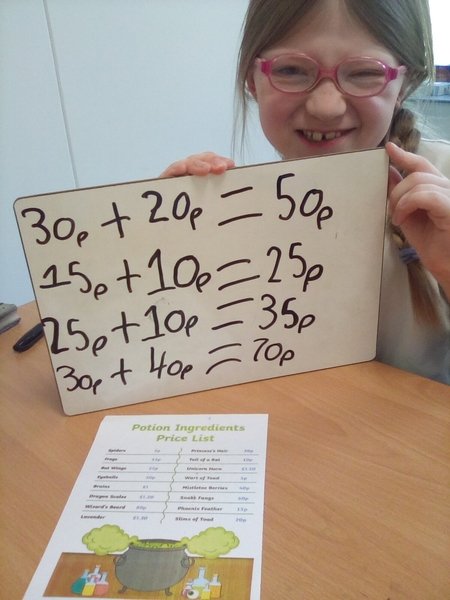 30p + 20p = 50p
15p + 10p = 25p
25p + 10p = 35p
30p + 40p = 70p
Potion Ingredients
Price List
Spiders 5p Princess's Hair
Frogs 15p Tail of a Rat 10p
Bat Wings Unicorn Horn £1.10
Eyeballs Wart of Toad 5p
Brains £1 Mistletoe Berries
Dragon Scales £1.20 Snake Fangs
Wizard's Beard Phoenix Feather 15p
Lavender £1.50 Slime of Toad 20p